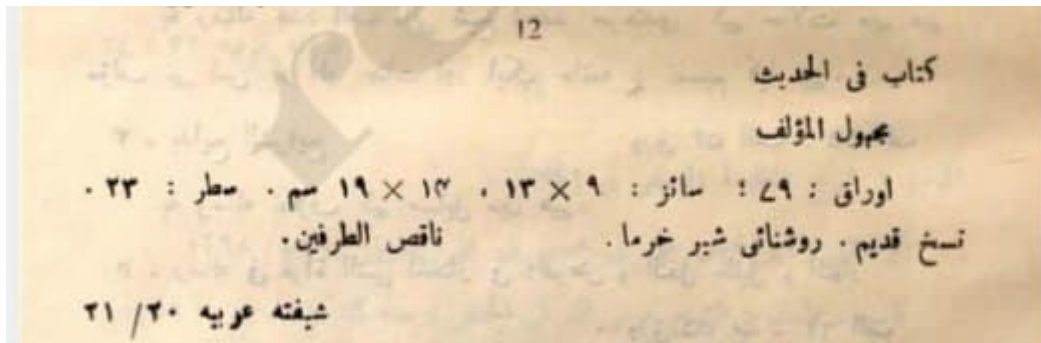 12
كتاب فى الحديث
مجهول المؤلف
اوراق : ۷۹ ؛ سائز : ۹ × ۱۳ ، ۱۴ × ۱۹ سم . سطر : ۲۳ .
نسخ قديم . روشنائى شير خرما . ناقص الطرفين .
شيفته عربيه ۲۰/ ۲۱